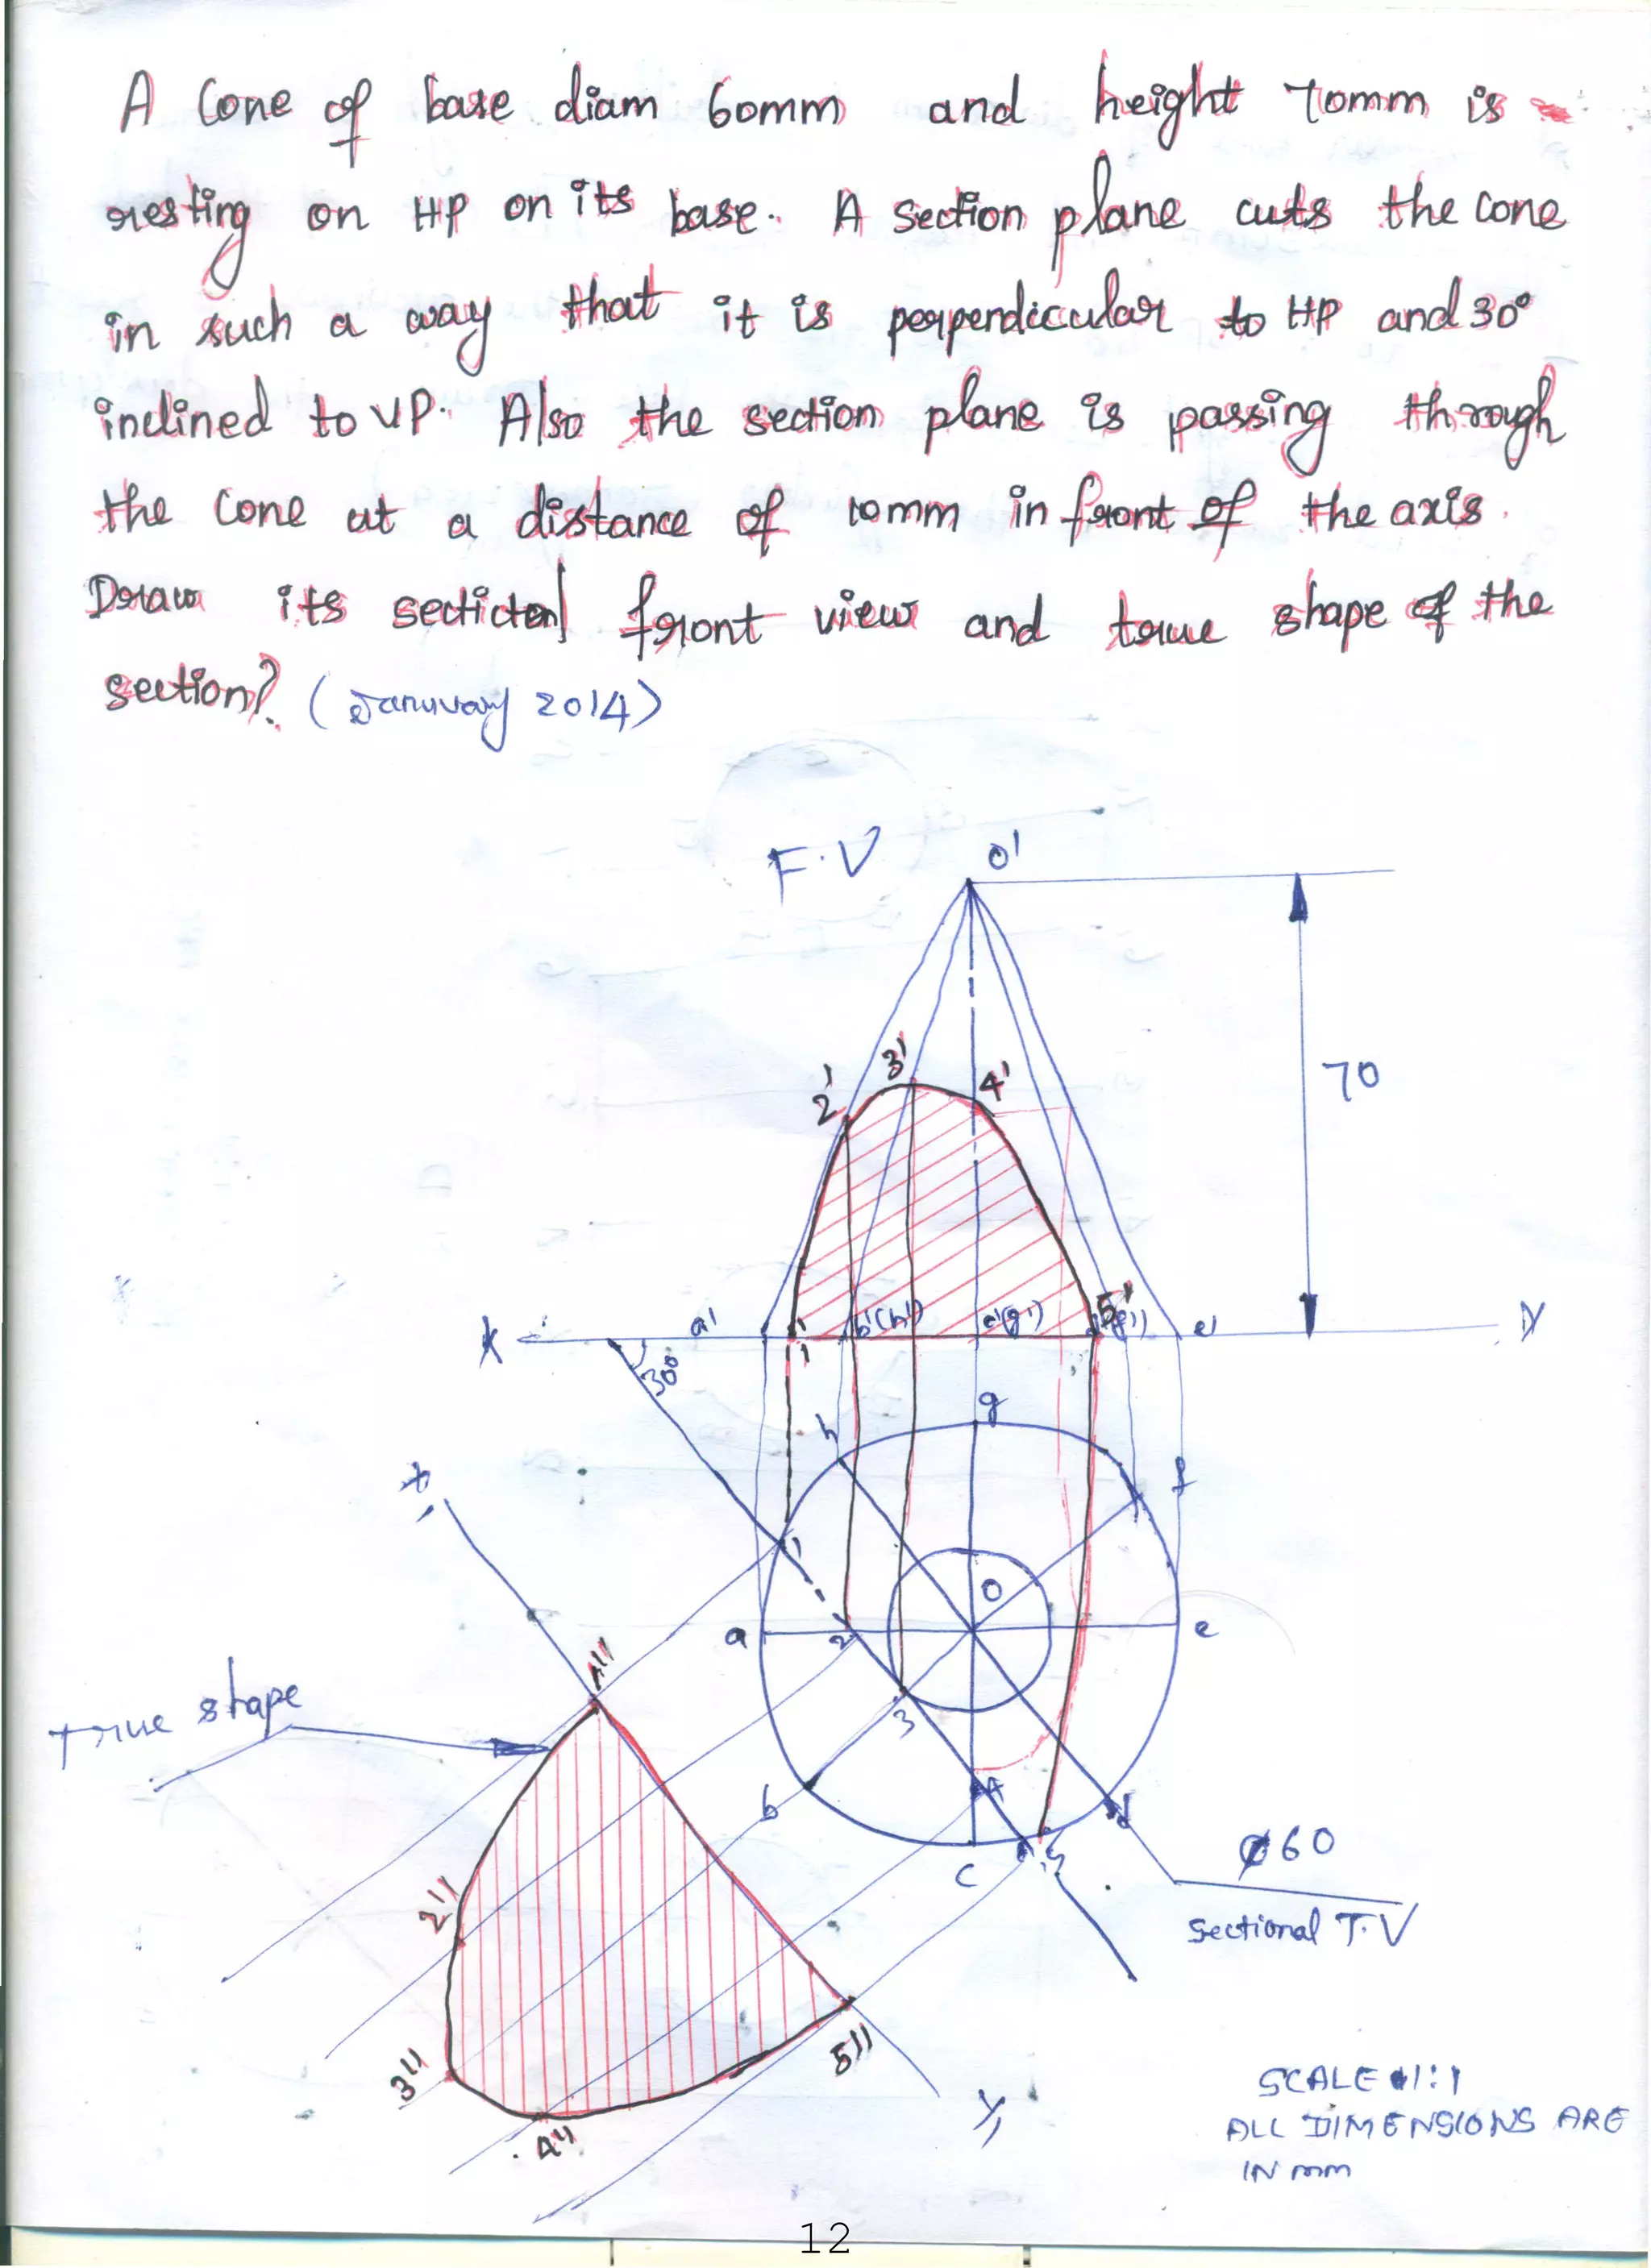 A Cone of base diam 60mm and height 70mm is
resting on HP on its base. A section plane cuts the cone
in such a way that it is perpendicular to HP and 30°
inclined to VP. Also the section plane is passing through
the cone at a distance of 10mm in front of the axis.
Draw its section front view and true shape of the
section? (January 2014)
F.V
O'
3'
2'
4'
70
X
a'
1'
b'(h')
c'(g')
5'
(f')
e'
Y
30°
g
h
f
x,
1
O
a
2
e
3
4
b
d
c
5
ø60
sectional T.V
True shape
1''
2''
3''
4''
5''
y,
SCALE 1:1
ALL DIMENSIONS ARE
IN mm
12